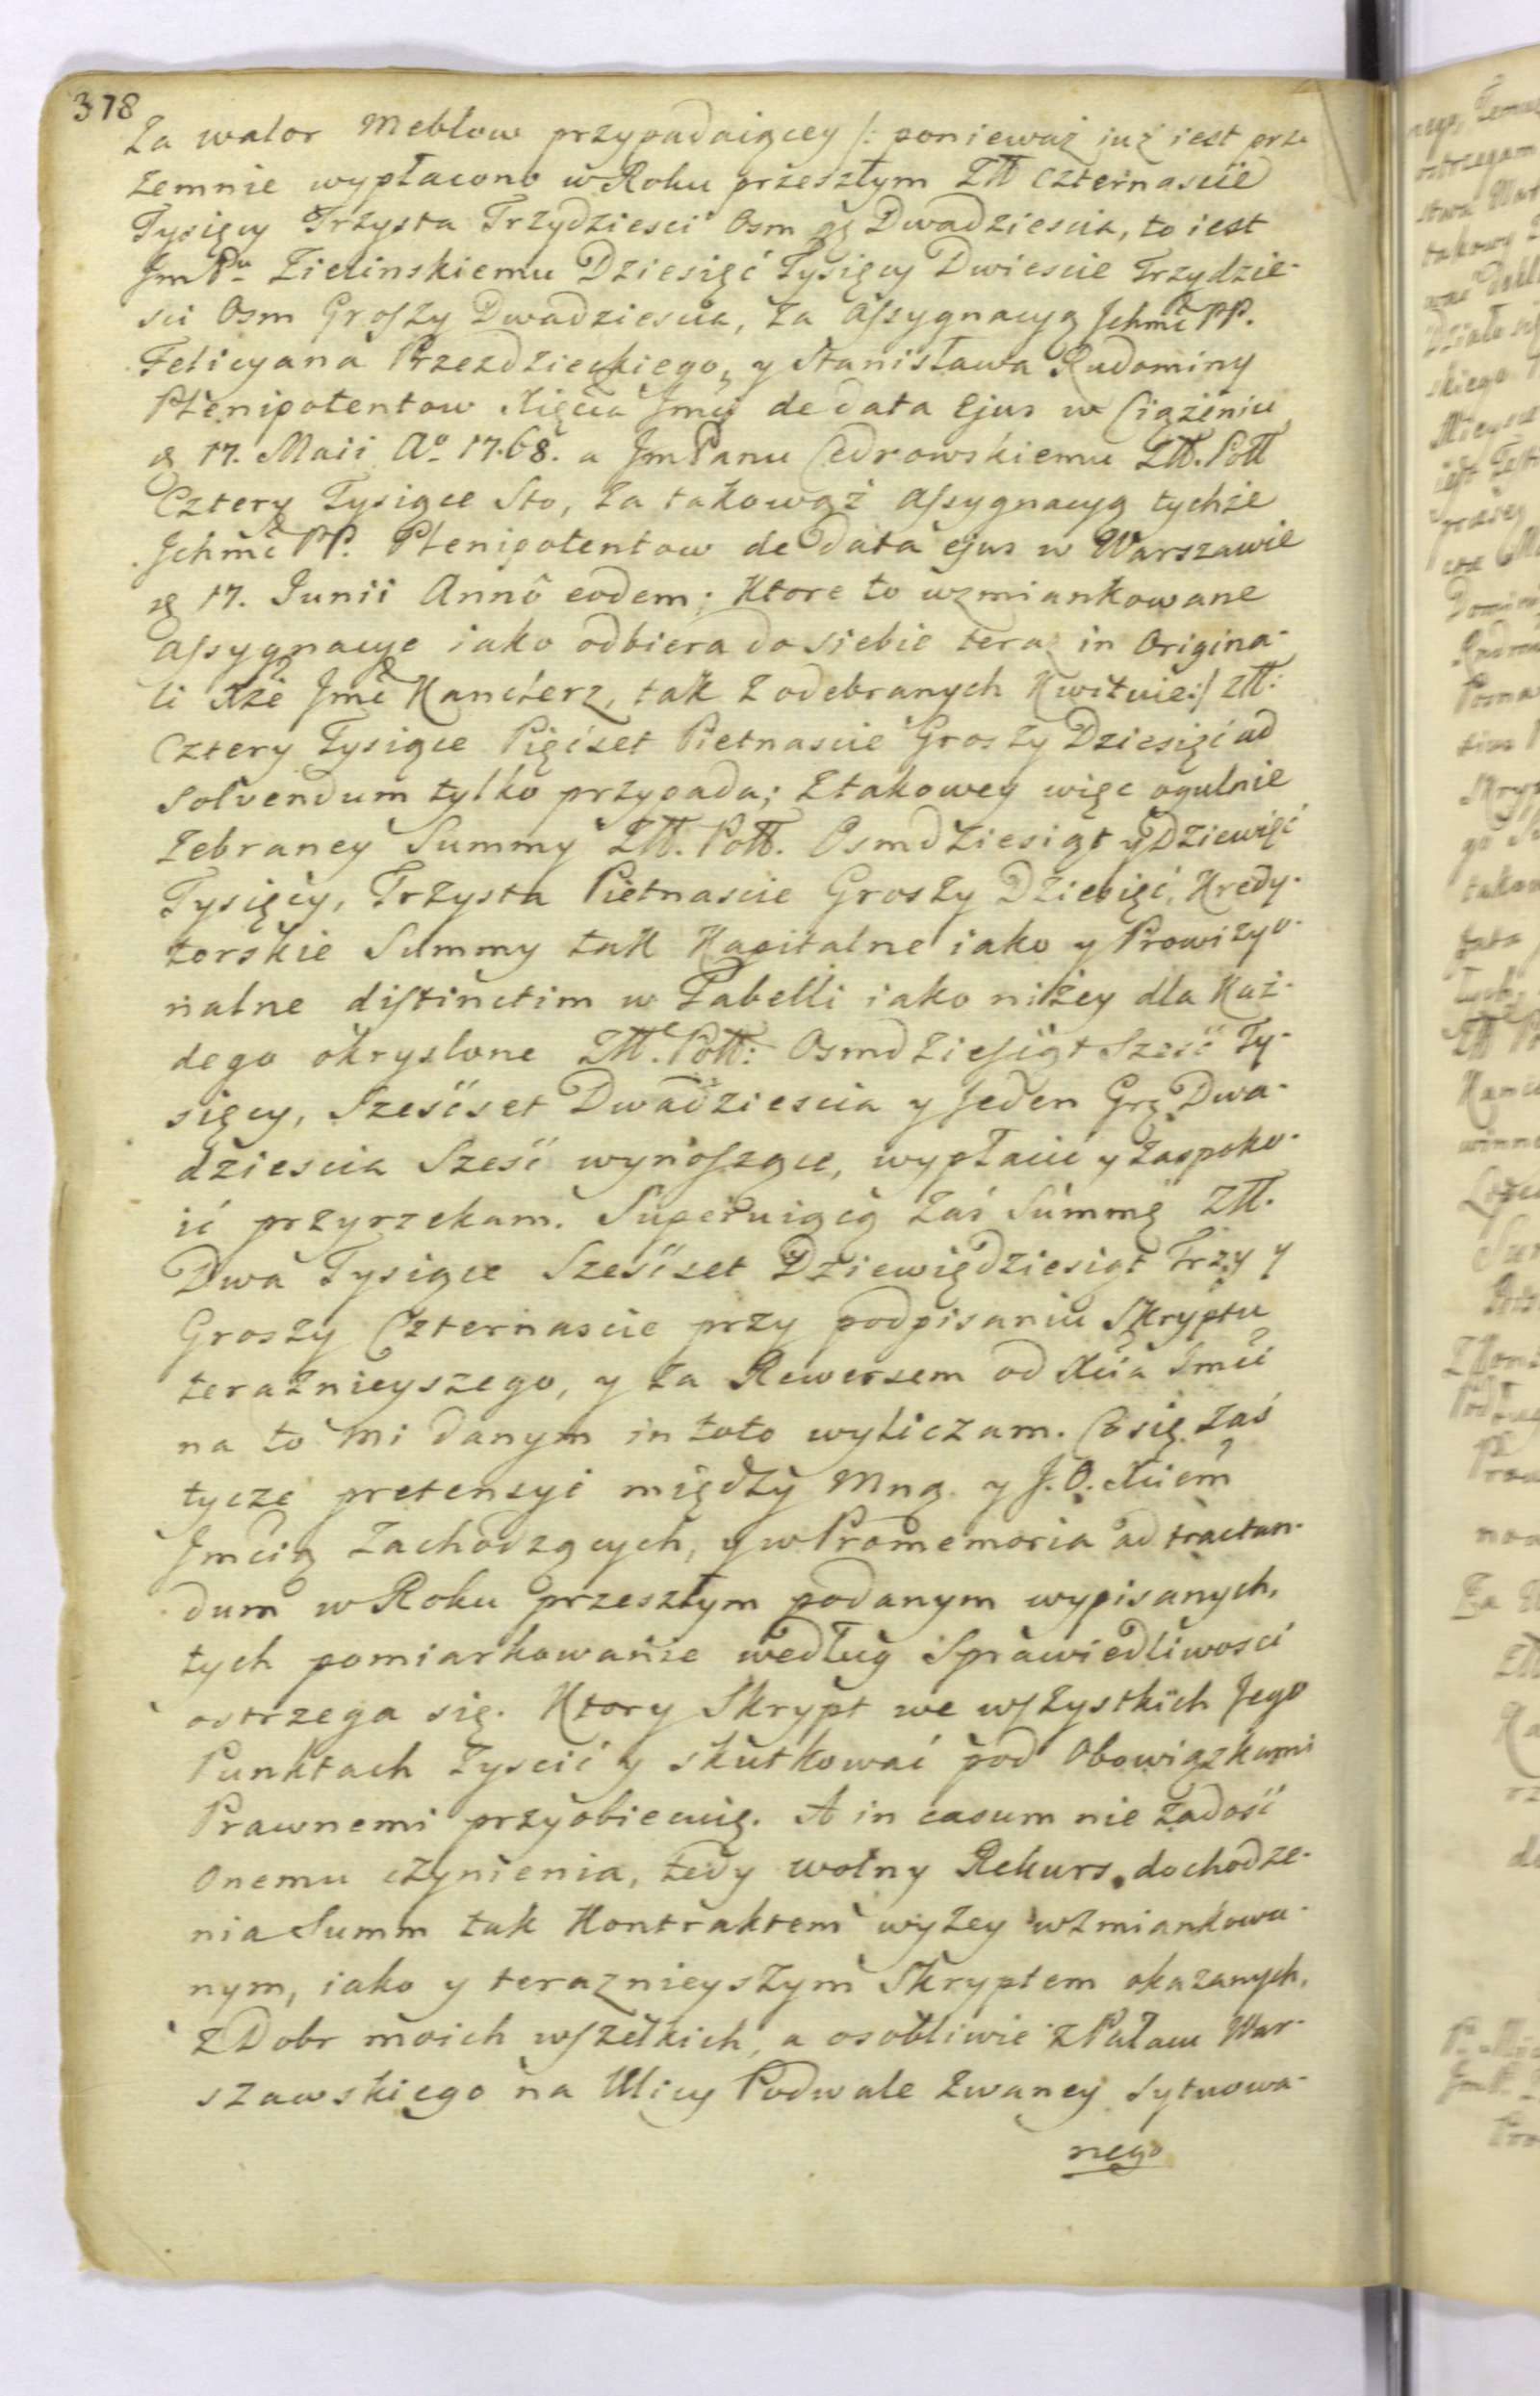 378
Za walor Meblow przypadaiącey /: ponieważ już iest prze
zemnie wypłacono w Roku przeszłym Złł czternascie
Tysięcy Trzysta Trzydziesci Osm gę Dwadziescia, to iest
JmPu Zielinskiemu Dziesięć Tysięcy Dwiescie Trzydzie-
sci Osm Groszy Dwadziescia, za Assygnacyą Jchmć PP.
Felicyana Przezdzieckiego, y Stanisława Rudominy
Plenipotentow Xięcia Jmci de data Ejus w Ciążeniu
d. 17. Maii Ao. 17.68. a JmPanu Cedrowskiemu Złł. Poll
Cztery Tysiące Sto, za takowąż Assygnacyą tychże
Jchmć PP. Plenipotentow de data ejus w Warszawie
d. 17. Junii Annô eodem; Ktore to wzmiankowane
Assygnacye iako odbiera do siebie teraz in Origina-
li Xże Jmć Kanclerz, tak z odebranych Kwituie:/ złł:
Cztery Tysiące Pięćset Pietnascie Groszy Dziesięć ad
solvendum tylko przypada; Ztakowey więc ogulnie
zebraney Summy Złł. Poll. Osmdziesiąt y Dziewięć
Tysięcy, Trzysta Pietnascie Groszy Dziesięć, Kredy-
torskie Summy tak Kapitalne iako y Prowizyo-
nalne distinctim w Tabelli iako niżey dla Każ-
dego okryslone Złł. Poll: Osmdziesiąt Szesć Ty-
sięcy, Szesćset Dwadziescia y Jeden Grę Dwa-
dziescia Szesć wynoszące, wypłacić y zaspoko-
ić przyrzekam. Superuiącą zaś Summę Złł.
Dwa Tysiące Szesćset Dziewiędziesiąt Trzy y
Groszy Czternascie przy podpisaniu Skryptu
teraznieyszego, y za Rewersem od Xcia Jmci
na to mi danym in toto wyliczam. Co się zaś
tycze pretensyi między Mną y J.O. Xciem
Jmcią zachodzących, y w Promemoria ad tractan-
dum w Roku przeszłym podanym wypisanych,
tych pomiarkowanie według Sprawiedliwosci
ostrzega się. Ktory Skrypt we wszystkich Jego
Punktach zyscić y skutkować pod Obowiązkami
Prawnemi przyobiecuię. A in casum nie zadosć
Onemu czynienia, tedy wolny Rekurs, dochodze-
nia Summ tak Kontraktem wyzey wzmiankowa-
nym, iako y teraznieyszym Skryptem okazanych,
z Dobr moich wszelkich, a osobliwie z Pałacu War-
szawskiego na Ulicy Podwale zwaney sytuowa-
nego